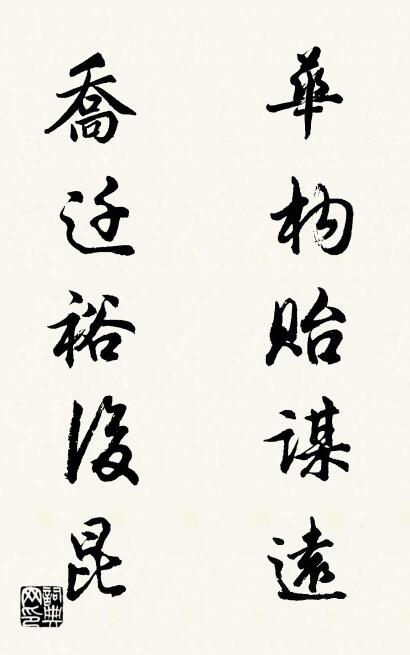 華构貽謀遠
喬迁裕後昆
詞典网印